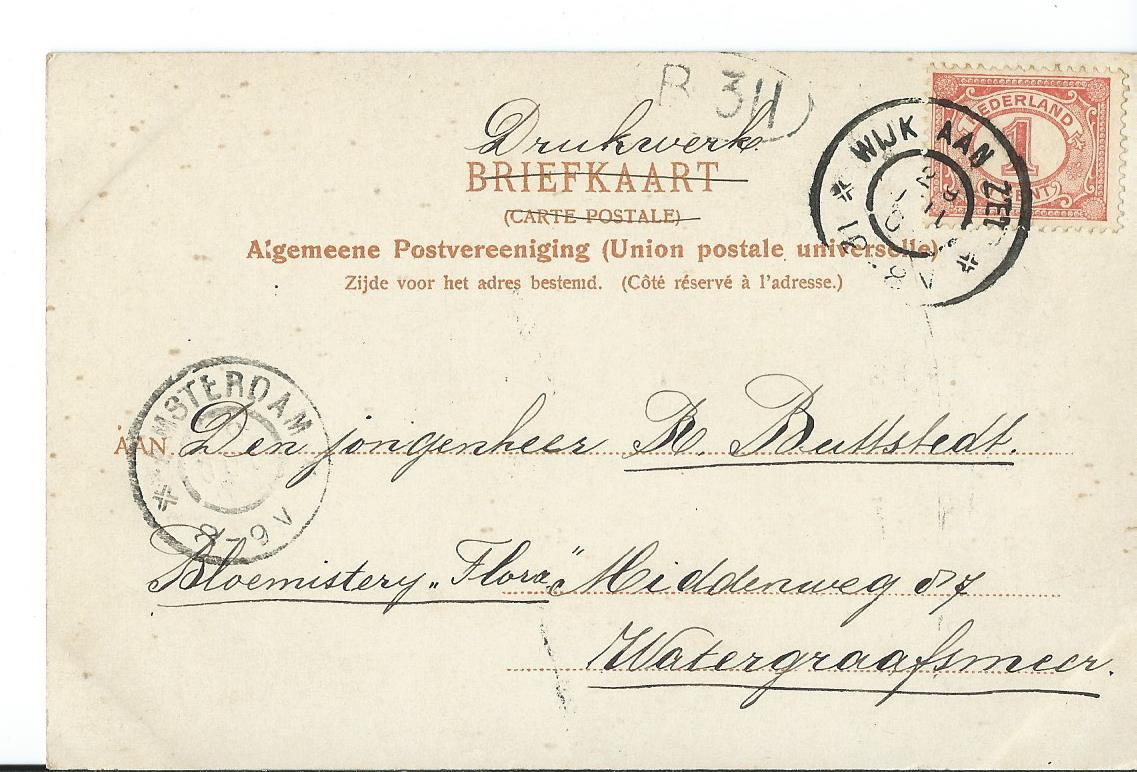 B 311
Drukwerk
BRIEFKAART
(CARTE POSTALE)
Algemeene Postvereeniging (Union postale universelle)
Zijde voor het adres bestemd. (Côté réservé à l'adresse.)
NEDERLAND
1
CENT
WIJK AAN ZEE
AMSTERDAM
8-9V
AAN Den jongenheer R. Buttstedt.
Bloemistery „Flora" Middenweg 87
Watergraafsmeer.